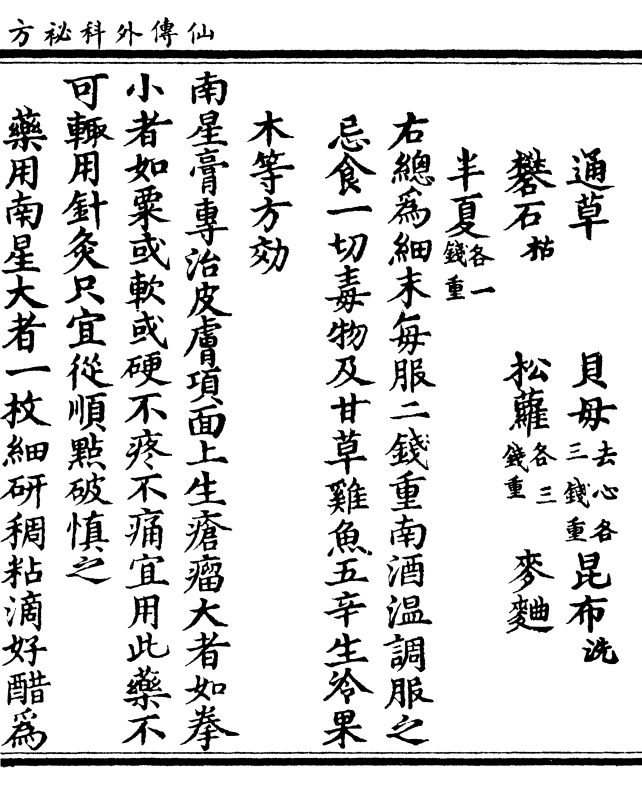 仙傳外科祕方
通草 貝母去心各三錢重 昆布洗
礬石枯 松蘿各三錢重 麥麯
半夏各一錢重
右總爲細末每服二錢重南酒温調服之
忌食一切毒物及甘草雞魚五辛生冷果
木等方効
南星膏專治皮膚項面上生瘡瘤大者如拳
小者如粟或軟或硬不疼不痛宜用此藥不
可輙用針灸只宜從順點破慎之
藥用南星大者一枚細研稠粘滴好醋爲